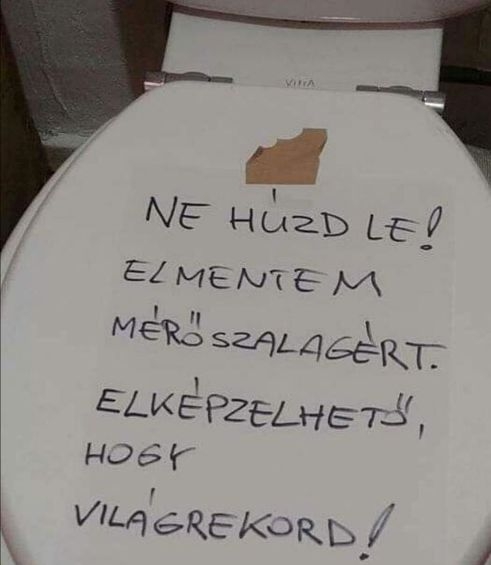 VITRA
NE HÚZD LE!
ELMENTEM
MÉRŐSZALAGÉRT.
ELKÉPZELHETŐ,
HOGY
VILÁGREKORD!